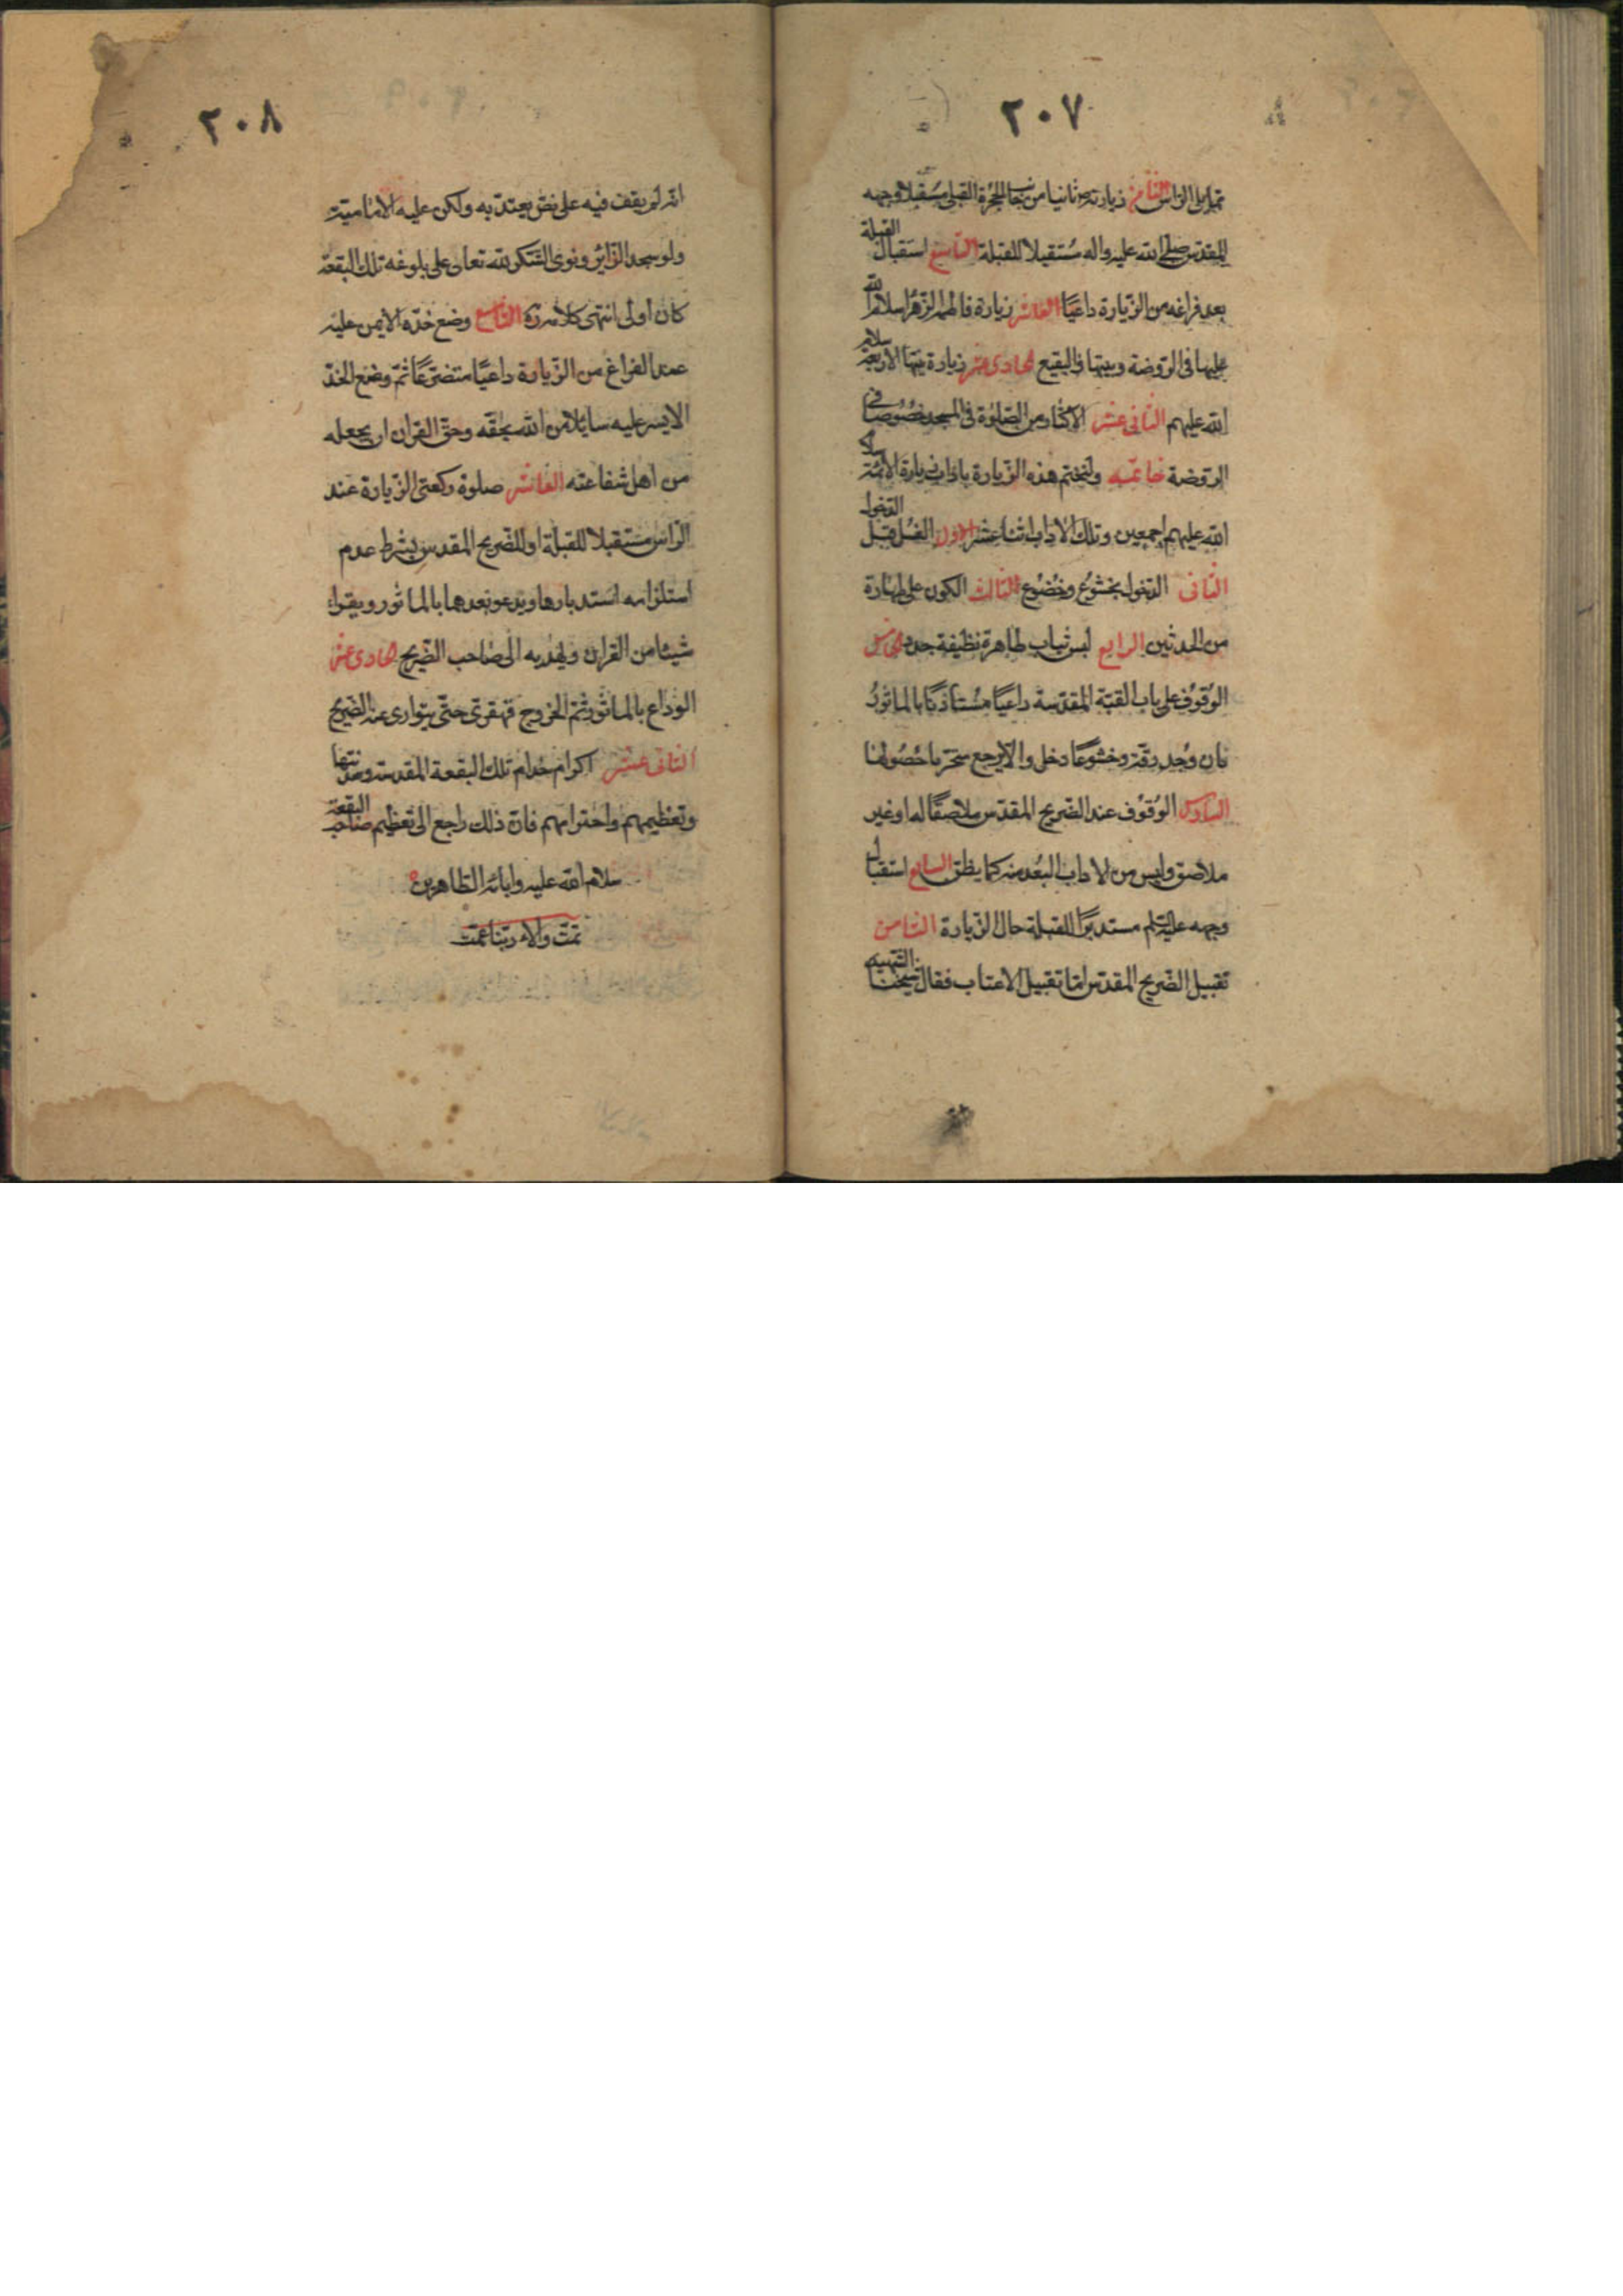 ٢٠٧
مما يلي الراس الثامن زيارته ثانيا من جانب الحجرة القبلي مستقبلا وجهه
المقدس صلى الله عليه واله مستقبلا للقبلة التاسع استقبال القبلة
بعد فراغه من الزيارة داعيا العاشر زيارة فاطمة الزهرا سلام الله
عليها في الروضة وبيتها والبقيع الحادى عشر زيارة الاربعة سلام
الله عليهم الثاني عشر الاكثار من الصلوة في المسجد خصوصا في
الروضة خاتمة ولنختم هذه الزيارة باداب زيارة الائمة سلام
الله عليهم اجمعين وتلك الاداب اثنا عشر الاول الغسل قبل الدخول
الثانى الدخول بخشوع وخضوع الثالث الكون على طهارة
من الحدثين الرابع لبس ثياب طاهرة نظيفة جدد الخامس
الوقوف على باب القبة المقدسة داعيا مستاذنا بالماثور
فان وجد رقة وخشوعا دخل والا رجع متحريا حصولها
السادس الوقوف عند الضريح المقدس ملاصقا له او غير
ملاصق وليس من الاداب البعد منه كما يظن السابع استقبال
وجهه عليه السلم مستدبرا للقبلة حال الزيارة الثامن
تقبيل الضريح المقدس اما تقبيل الاعتاب فقال شيخنا الشهيد
٢٠٨
انه لم يقف فيه على نص يعتد به ولكن عليه الامامية
ولو سجد الزائر ونوى الشكر لله تعالى على بلوغه تلك البقعة
كان اولى انتهى كلامه ره التاسع وضع خده الايمن عليه
عند الفراغ من الزيارة داعيا متضرعا ثم وضع الخد
الايسر عليه سايلا من الله بحقه وحق القران ان يجعله
من اهل شفاعته العاشر صلوة ركعتي الزيارة عند
الراس مستقبلا للقبلة او للضريح المقدس بشرط عدم
استلزامه استدبارها ويدعو بعدهما بالماثور ويقراء
شيئا من القران ويهديه الى صاحب الضريح الحادى عشر
الوداع بالماثور ثم الخروج قهقرى حتى يتوارى عنه الضريح
الثانى عشر اكرام خدام تلك البقعة المقدسة وسدنتها
وتعظيمهم واحترامهم فان ذلك راجع الى تعظيم صاحب البقعة
سلام الله عليه وابائه الطاهرين
تمت والاء ربنا عمت